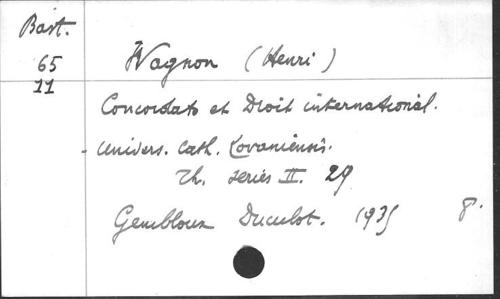 Bast.
65
11
Wagnon (Henri)
Concordats et Droit international.
- Univers. Cath. Lovaniensis.
Th. series II. 29
Gembloux Duculot. 1935 8°.